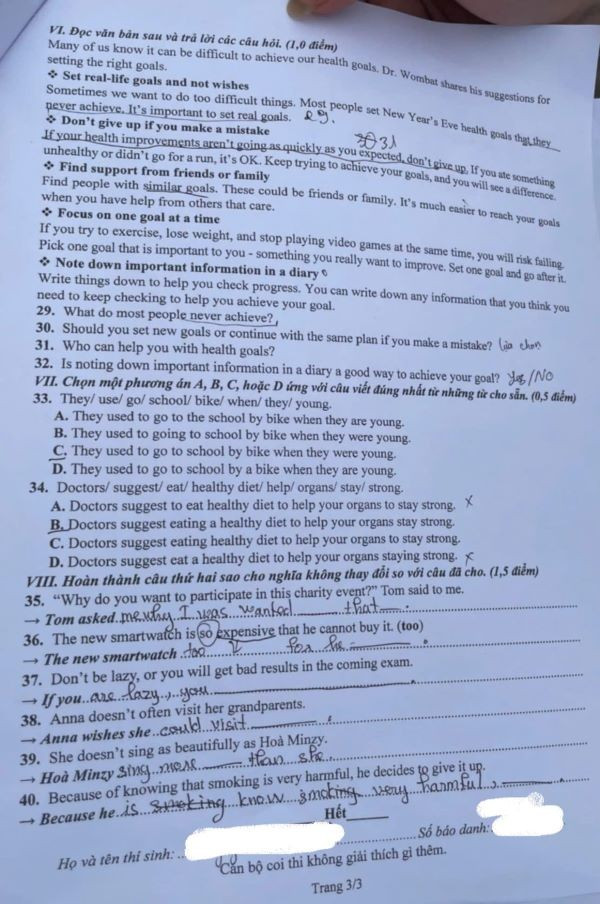 VI. Đọc văn bản sau và trả lời các câu hỏi. (1,0 điểm)
Many of us know it can be difficult to achieve our health goals. Dr. Wombat shares his suggestions for
setting the right goals.
❖ Set real-life goals and not wishes
Sometimes we want to do too difficult things. Most people set New Year's Eve health goals that they
never achieve. It's important to set real goals. 29.
❖ Don't give up if you make a mistake 30 31
If your health improvements aren't going as quickly as you expected, don't give up. If you ate something
unhealthy or didn't go for a run, it's OK. Keep trying to achieve your goals, and you will see a difference.
❖ Find support from friends or family
Find people with similar goals. These could be friends or family. It's much easier to reach your goals
when you have help from others that care.
❖ Focus on one goal at a time
If you try to exercise, lose weight, and stop playing video games at the same time, you will risk failing.
Pick one goal that is important to you - something you really want to improve. Set one goal and go after it.
❖ Note down important information in a diary
Write things down to help you check progress. You can write down any information that you think you
need to keep checking to help you achieve your goal.
29. What do most people never achieve?
30. Should you set new goals or continue with the same plan if you make a mistake? lựa chọn
31. Who can help you with health goals?
32. Is noting down important information in a diary a good way to achieve your goal? Yes/NO
VII. Chọn một phương án A, B, C, hoặc D ứng với câu viết đúng nhất từ những từ cho sẵn. (0,5 điểm)
33. They/ use/ go/ school/ bike/ when/ they/ young.
A. They used to go to the school by bike when they are young.
B. They used to going to school by bike when they were young.
C. They used to go to school by bike when they were young.
D. They used to go to school by a bike when they are young.
34. Doctors/ suggest/ eat/ healthy diet/ help/ organs/ stay/ strong.
A. Doctors suggest to eat healthy diet to help your organs to stay strong. X
B. Doctors suggest eating a healthy diet to help your organs stay strong.
C. Doctors suggest eating healthy diet to help your organs to stay strong.
D. Doctors suggest eat a healthy diet to help your organs staying strong. X
VIII. Hoàn thành câu thứ hai sao cho nghĩa không thay đổi so với câu đã cho. (1,5 điểm)
35. “Why do you want to participate in this charity event?” Tom said to me.
→ Tom asked me why I was wanted that
36. The new smartwatch is so expensive that he cannot buy it. (too)
→ The new smartwatch too for he
37. Don't be lazy, or you will get bad results in the coming exam.
→ If you are lazy, you
38. Anna doesn't often visit her grandparents.
→ Anna wishes she could visit
39. She doesn't sing as beautifully as Hoà Minzy.
→ Hoà Minzy sing more than she
40. Because of knowing that smoking is very harmful, he decides to give it up.
→ Because he is smoking know smoking very harmful,
Hết
Họ và tên thí sinh: Số báo danh:
Cán bộ coi thi không giải thích gì thêm.
Trang 3/3